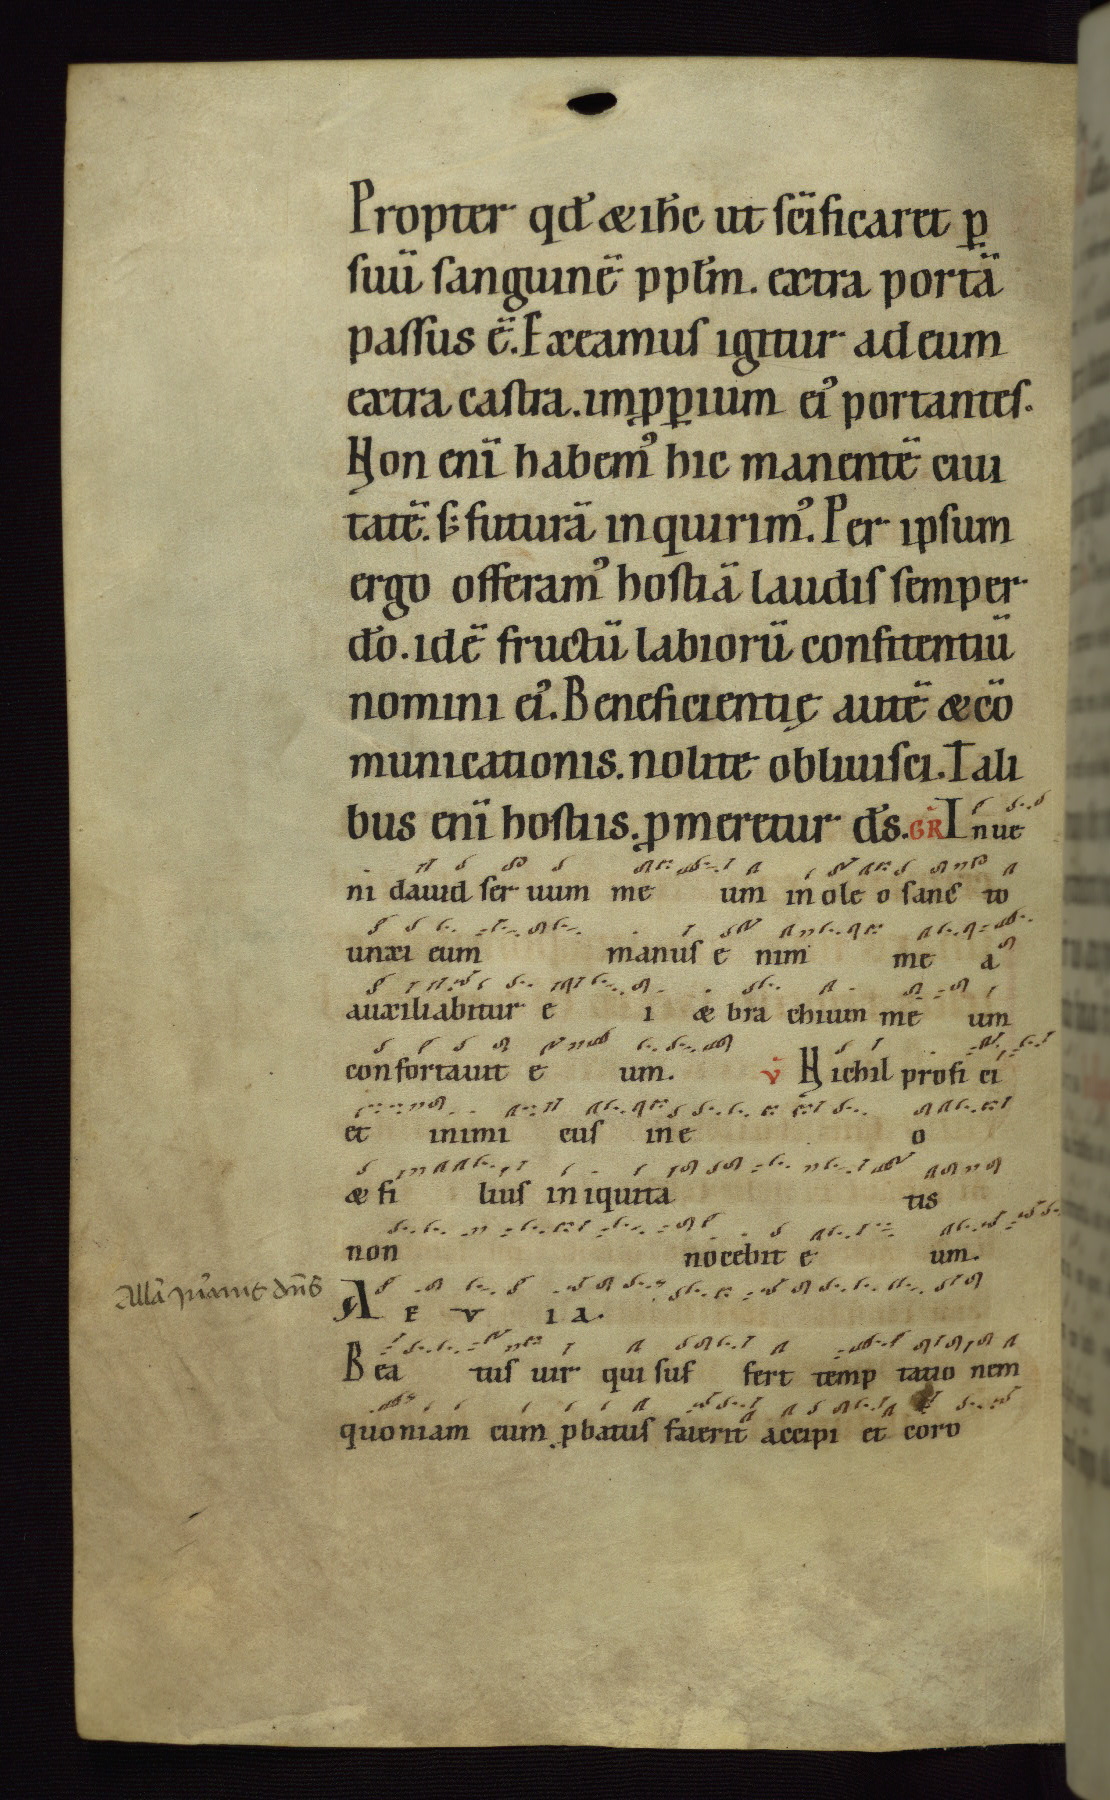 Propter qđ & ihc ut scificaret ꝑ
suū sanguinē pplm. extra portā
passus ē. Exeamus igitur ad eum
extra castra. imꝓꝑium ei᾽ portantes.
Non enī habem᾽ hic manentē ciui
tatē. s; futurā inquirim᾽. Per ipsum
ergo offeram᾽ hostiā laudis semper
do. id ē fructū labiorū confitentiū
nomini ei᾽. Beneficientię autē & cō
municationis. nolite obliuisci. Tali
bus enī hostiis. ꝓmeretur ds. GR Inue
ni dauid seruum me um in oleo sanc to
unxi eum manus e nim me a
auxiliabitur e i & bra chium me um
confortauit e um. V Nichil profi ci
et inimi cus in e o
& fi lius iniquita tis
non nocebit e um.
Alla iurauit dns
A E V I A.
Bea tus uir qui suf fert temp tatio nem
quoniam cum ꝓbatus fuerit accipi et coro